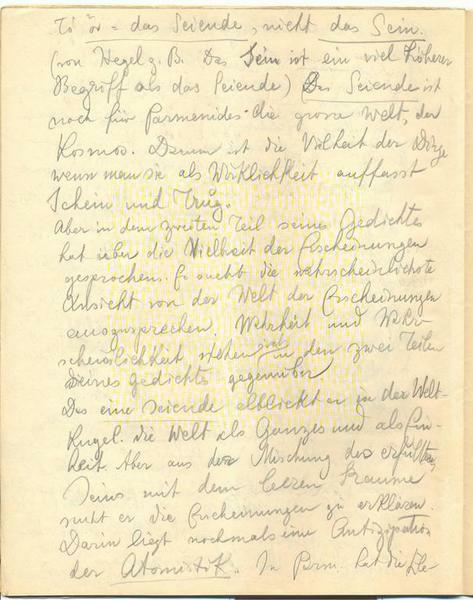 Τὸ ὄν = das Seiende, nicht das Sein.
(von Hegel z. B. Das Sein ist ein viel höherer
Begriff als das Seiende) Das Seiende ist
noch für Parmenides die grosse Welt, der
Kosmos. Darum ist die Vielheit der Dinge
wenn man sie als Wirklichkeit auffasst
Schein und Trug.
Aber in dem zweiten Teil seines Gedichtes
hat über die Vielheit der Erscheinungen
gesprochen. Er sucht die wahrscheinlichste
Ansicht von der Welt der Erscheinungen
auszusprechen. Wahrheit und Wahr-
scheinlichkeit stehen in den zwei Teilen
seines Gedichtes gegenüber
Das eine Seiende erblickt er in der Welt-
Kugel. die Welt als Ganzes und als Ein-
heit. Aber aus der Mischung des erfüllten
Seins mit dem leeren Raume
sucht er die Erscheinungen zu erklären.
Darin liegt nochmals eine Antizipation
der Atomistik. In Parm. hat die Ele-